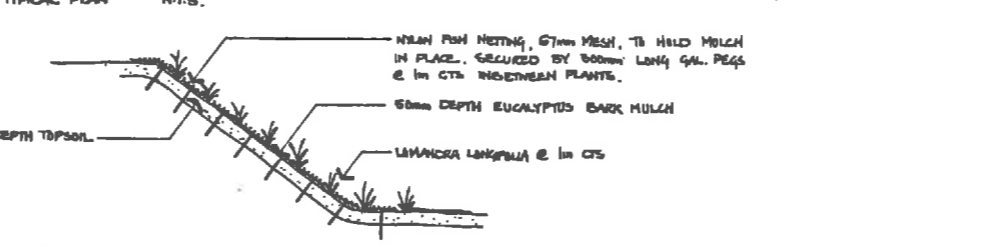 TYPICAL PLAN N.T.S.
NYLON FISH NETTING, 67mm MESH, TO HOLD MULCH
IN PLACE. SECURED BY 300mm LONG GAL. PEGS
@ 1m CTS INBETWEEN PLANTS.
50mm DEPTH EUCALYPTUS BARK MULCH
DEPTH TOPSOIL
LOMANDRA LONGIFOLIA @ 1m CTS